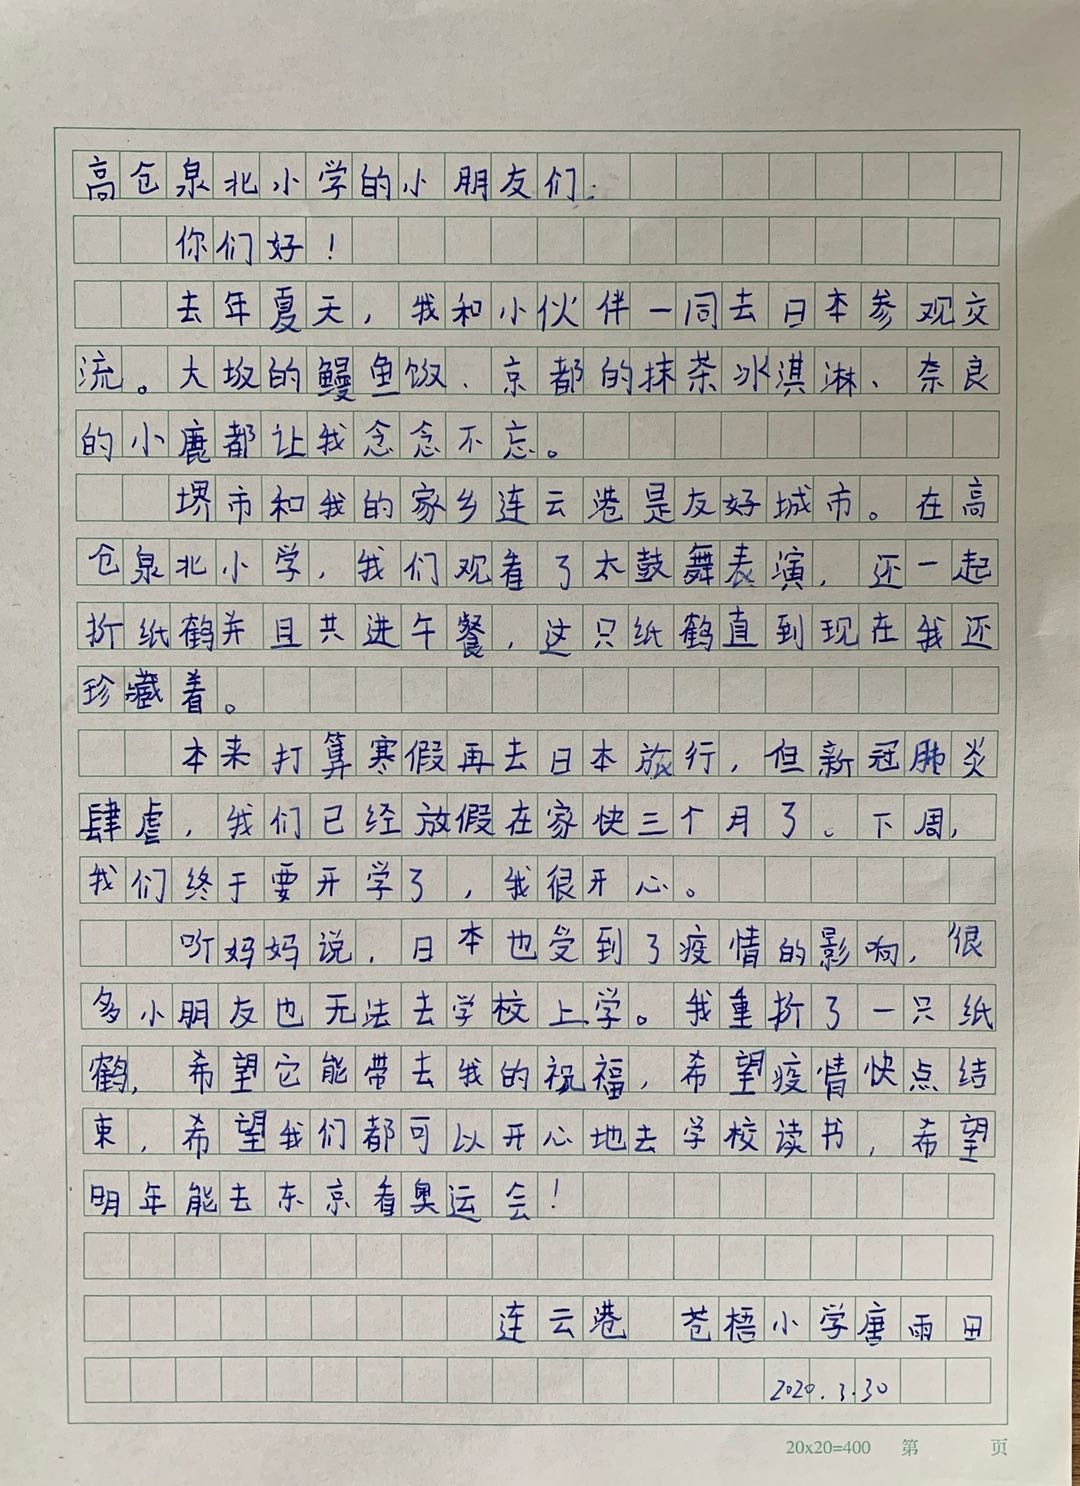 高仓泉北小学的小朋友们:
你们好!
去年夏天,我和小伙伴一同去日本参观交
流。大坂的鳗鱼饭、京都的抹茶冰淇淋、奈良
的小鹿都让我念念不忘。
堺市和我的家乡连云港是友好城市。在高
仓泉北小学,我们观看了太鼓舞表演,还一起
折纸鹤并且共进午餐,这只纸鹤直到现在我还
珍藏着。
本来打算寒假再去日本旅行,但新冠肺炎
肆虐,我们已经放假在家快三个月了。下周,
我们终于要开学了,我很开心。
听妈妈说,日本也受到了疫情的影响,很
多小朋友也无法去学校上学。我重折了一只纸
鹤,希望它能带去我的祝福,希望疫情快点结
束,希望我们都可以开心地去学校读书,希望
明年能去东京看奥运会!
连云港 苍梧小学唐雨田
2020.3.30
20x20=400 第 页